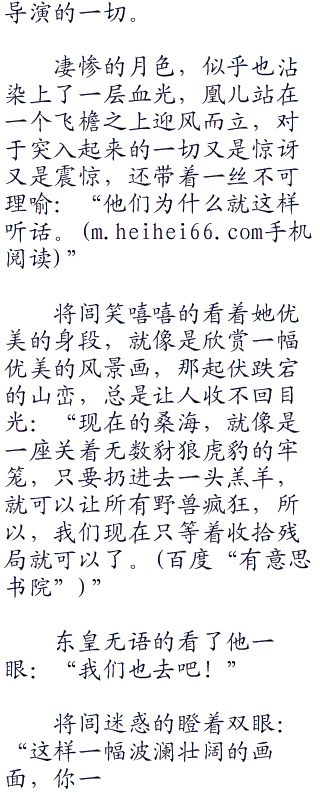 导演的一切。
凄惨的月色，似乎也沾
染上了一层血光，凰儿站在
一个飞檐之上迎风而立，对
于突入起来的一切又是惊讶
又是震惊，还带着一丝不可
理喻：“他们为什么就这样
听话。(m.heihei66.com手机
阅读)”
将闾笑嘻嘻的看着她优
美的身段，就像是欣赏一幅
优美的风景画，那起伏跌宕
的山峦，总是让人收不回目
光：“现在的桑海，就像是
一座关着无数豺狼虎豹的牢
笼，只要扔进去一头羔羊，
就可以让所有野兽疯狂，所
以，我们现在只等着收拾残
局就可以了。(百度“有意思
书院”)”
东皇无语的看了他一
眼：“我们也去吧！”
将闾迷惑的瞪着双眼：
“这样一幅波澜壮阔的画
面，你一